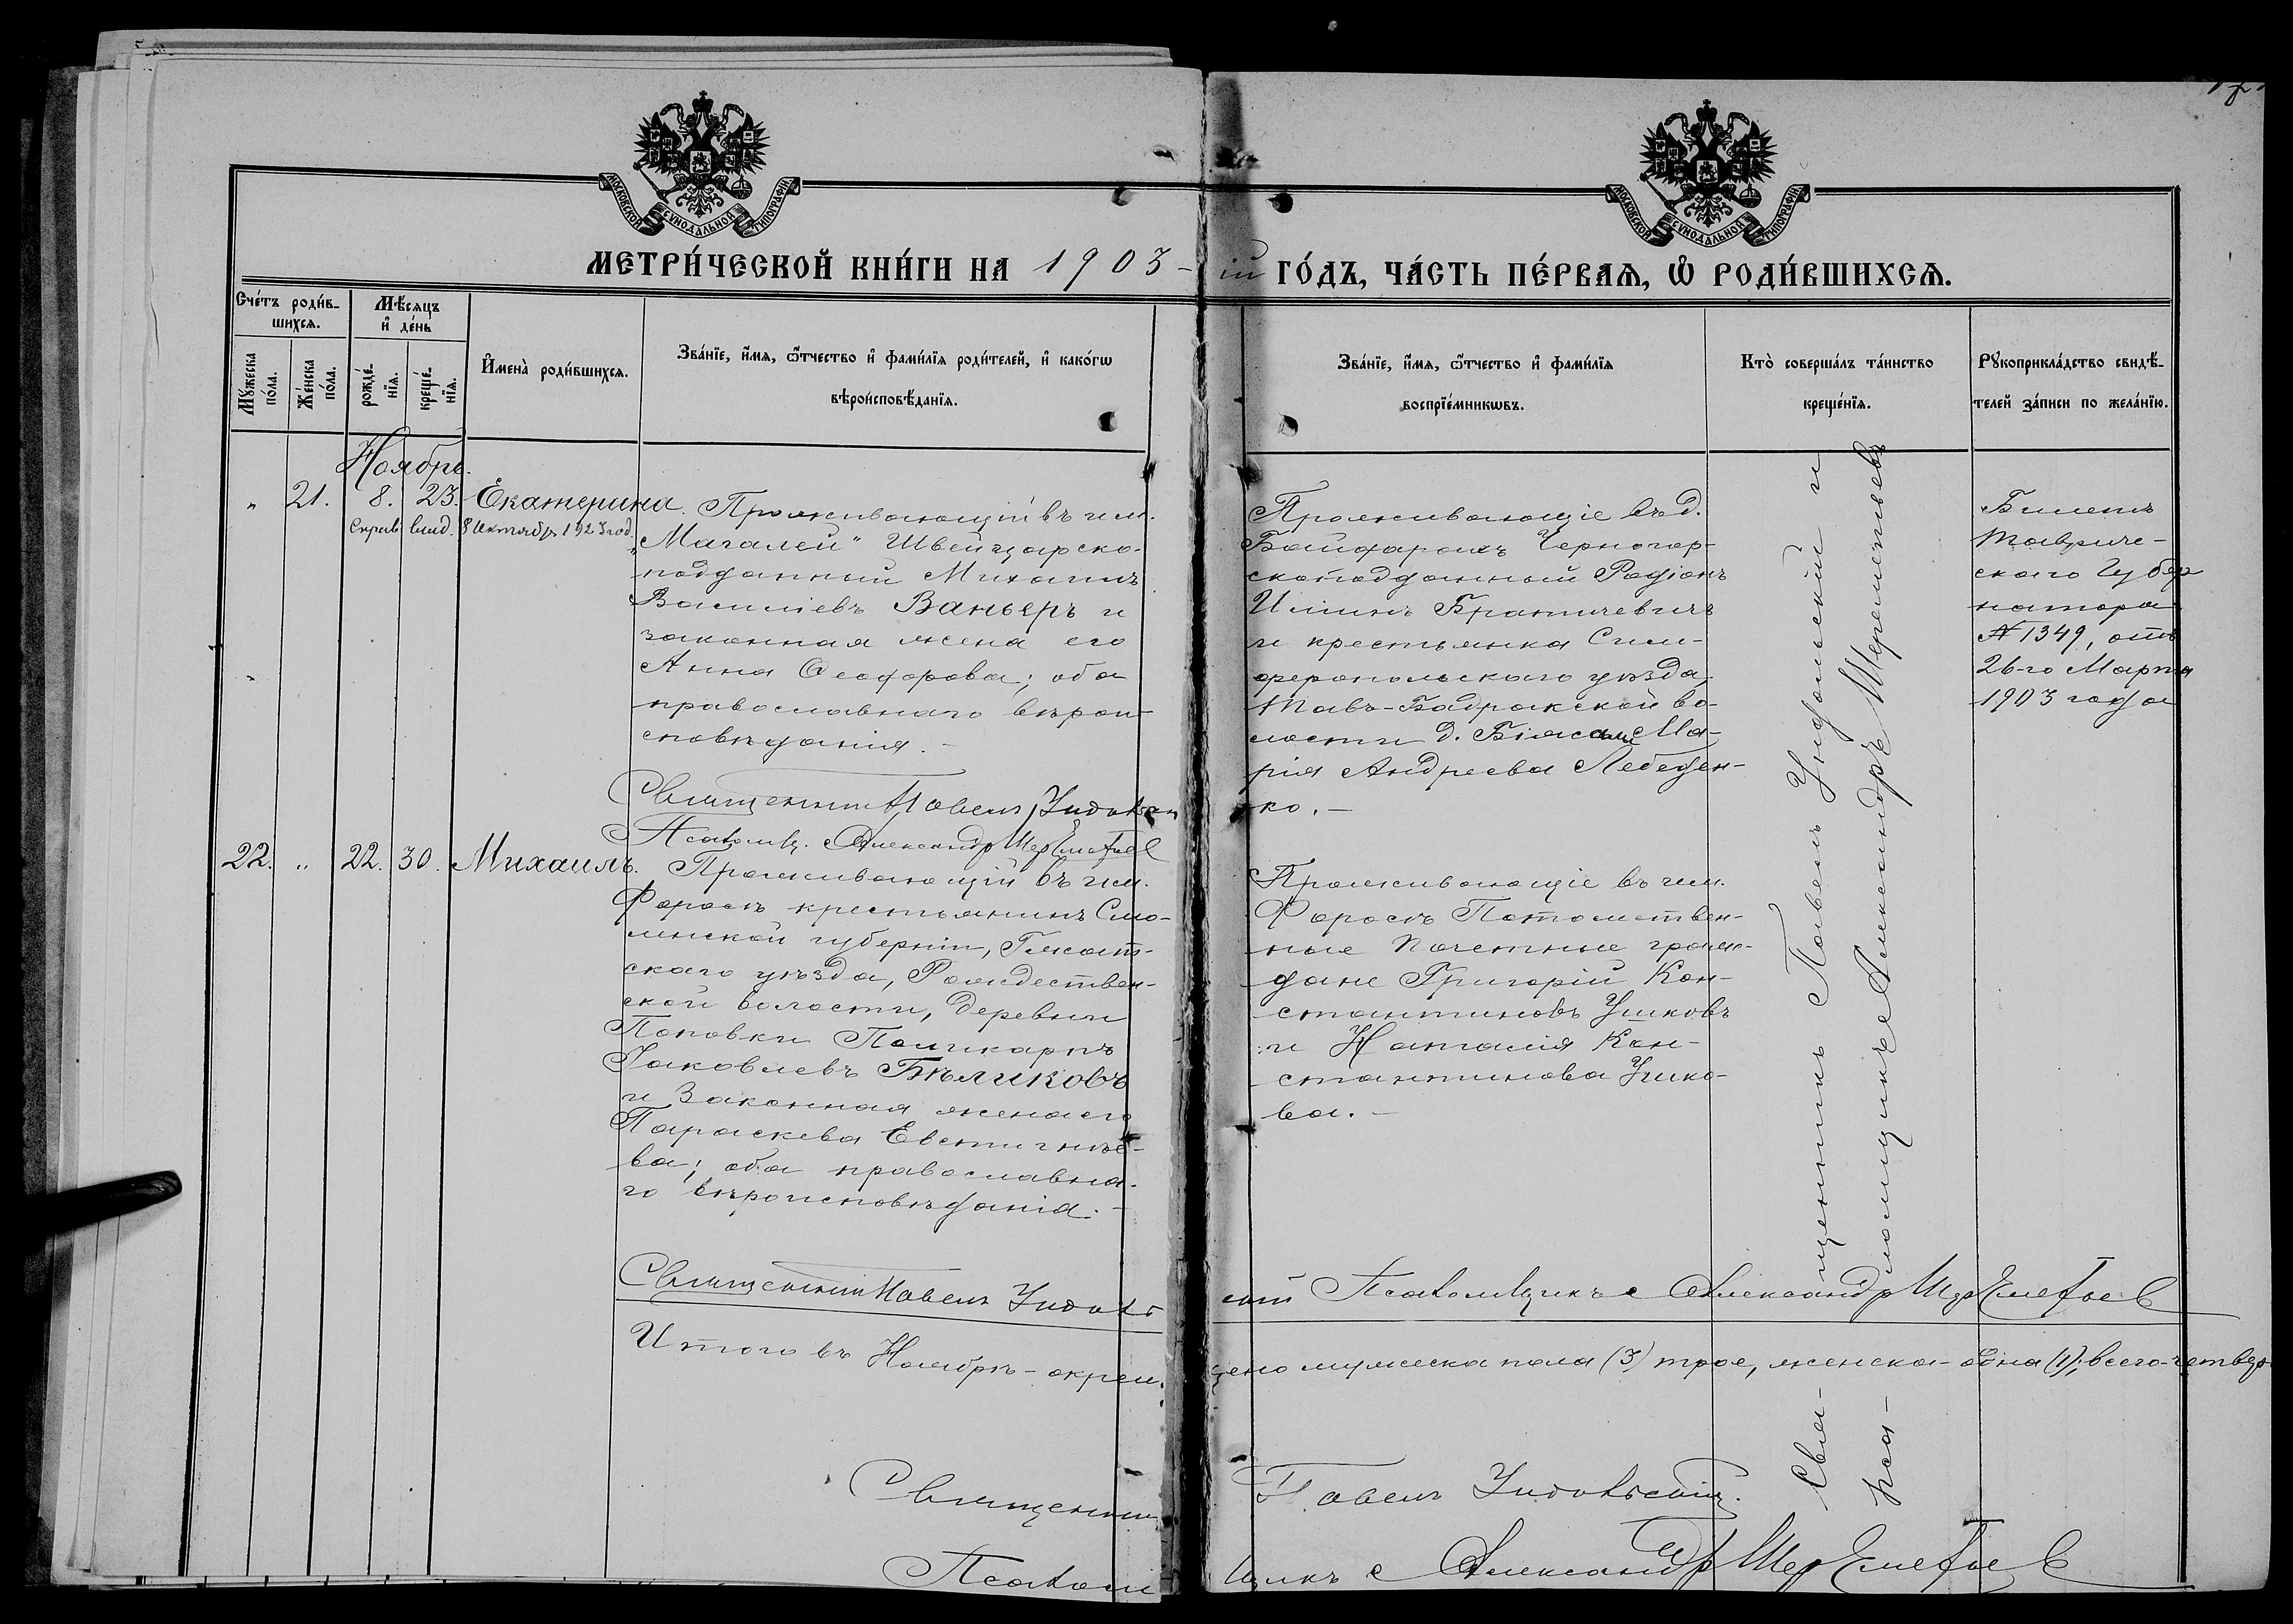 МОСКОВСКОЙ СУНОДАЛЬНОЙ ТИПОГРАФІИ
МОСКОВСКОЙ СУНОДАЛЬНОЙ ТИПОГРАФІИ
МЕТРИ́ЧЕСКОЙ КНИ́ГИ НА 1903-ій ГО́ДЪ, ЧА́СТЬ ПЕ́РВАѦ, Ѽ РОДИ́ВШИХСѦ.
Сче́тъ роди́в-
шихсѧ.
Мѣ́сѧцъ
и҆ де́нь
Мꙋ́жеска
по́ла.
Же́нска
по́ла.
рожде́-
нїѧ.
креще́-
нїѧ.
И҆мена̀ роди́вшихсѧ.
Зва́нїе, и҆́мѧ, ѻ҆́тчество и҆ фами́лїѧ роди́телей, и҆ како́гѡ
вѣроисповѣ́данїѧ.
Зва́нїе, и҆́мѧ, ѻ҆́тчество и҆ фами́лїѧ
воспрїе́мникѡвъ.
Кто̀ соверша́лъ та́инство
креще́нїѧ.
Рꙋкоприкла́дство свидѣ́-
телей за́писи по жела́нїю.
Ноябрь.
" 21. 8. 23. Екатерина.
8 Октябр 1923 год.
Проживающій въ им.
„Магалеи" Швейцарско-
подданный Михаилъ
Васильевъ Ваньеръ и
законная жена его
Анна Ѳеодорова; оба
православнаго вѣрои-
сповѣданія. -
Священникъ Павелъ
Псаломщ. Александр Шереметьев
Проживающіе въ д.
Байдарахъ Черногор-
скоподданный Радіонъ
Илiинъ Братичевичъ
и крестьянка Сим-
феропольскаго уѣзда,
Тавъ-Бадракской во-
лости д. Біасалы Ма-
рія Андреева Лебеден-
ко. -
Билетъ
Тавриче-
скаго Губер
натора
№ 1349, отъ
26-го Марта
1903 года
22. " 22. 30. Михаилъ.
Проживающій въ им.
Форосъ крестьянинъ Смо-
ленской губерніи, Гжат-
скаго уѣзда, Рождествен-
ской волости, деревни
Поповки Поликарпъ
Іаковлевъ Бѣликовъ
и Законная жена его
Параскева Евстигнѣе-
ва; оба православна-
го вѣроисповѣданія. -
Проживающіе въ им.
Форосъ Потомствен-
ные почетные граж-
дане Григорій Кон-
стантиновъ Ушковъ
и Наталія Кон-
стантинова Ушко-
ва. -
Свя-щенникъ Павелъ Ундольскій и
псаломщикъ Александръ Шереметьевъ
Священникъ Павелъ Ундольскій Псаломщикъ Александр Шереметьев
Итого въ Ноябрѣ - окрещено мужеска пола (3) трое, женска - одна (1); всего - четверо
Священникъ Павелъ Ундольскій.
Псаломщикъ Александр Шереметьев